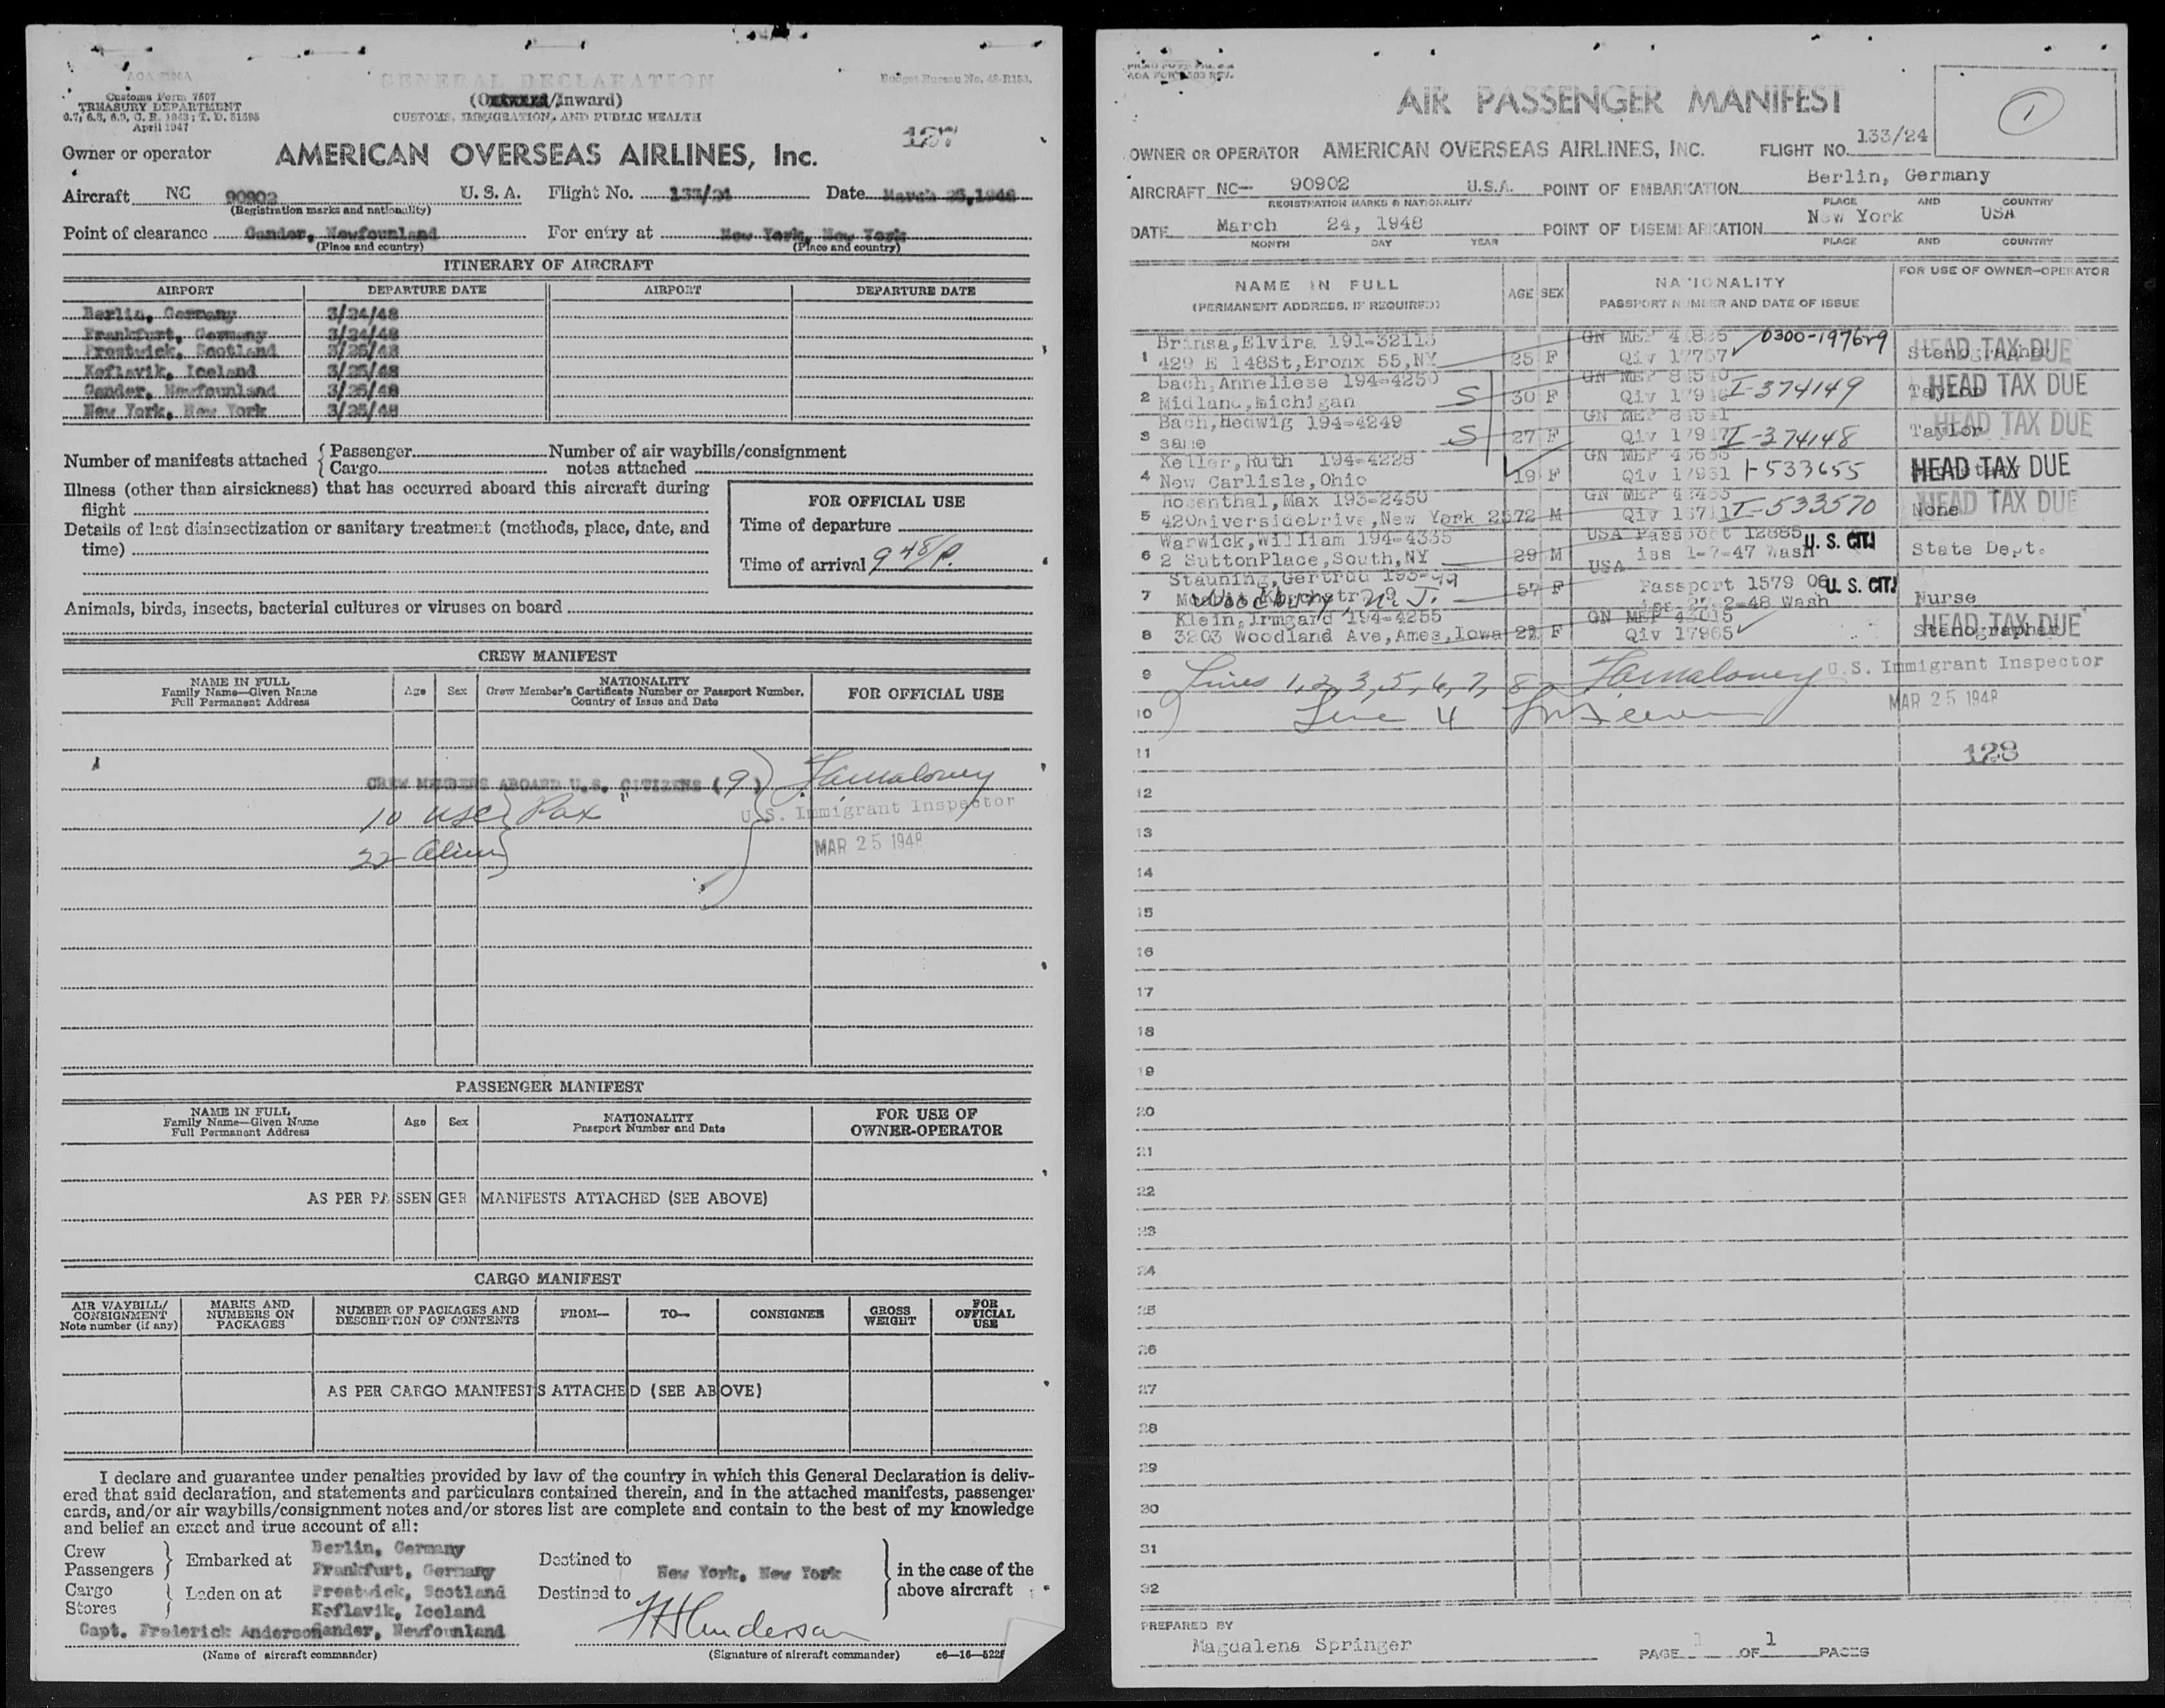 GENERAL DECLARATION
Budget Bureau No. 48-R153.
Customs Form 7507
TREASURY DEPARTMENT
April 1947
(Inward)
CUSTOMS, IMMIGRATION, AND PUBLIC HEALTH
127
Owner or operator AMERICAN OVERSEAS AIRLINES, Inc.
Aircraft NC 90902 U. S. A. Flight No. 133/24 Date March 25,1948
(Registration marks and nationality)
Point of clearance Gander, Newfounland For entry at New York, New York
(Place and country) (Place and country)
ITINERARY OF AIRCRAFT
AIRPORT DEPARTURE DATE AIRPORT DEPARTURE DATE
Berlin, Germany 3/24/48
Frankfurt, Germany 3/24/48
Prestwick, Scotland 3/25/48
Keflavik, Iceland 3/25/48
Gander, Newfounland 3/25/48
New York, New York 3/25/48
Number of manifests attached { Passenger Number of air waybills/consignment
Cargo notes attached
Illness (other than airsickness) that has occurred aboard this aircraft during
flight
Details of last disinsectization or sanitary treatment (methods, place, date, and
time)
FOR OFFICIAL USE
Time of departure
Time of arrival 9 48/P.
Animals, birds, insects, bacterial cultures or viruses on board
CREW MANIFEST
NAME IN FULL
Family Name—Given Name
Full Permanent Address
Age Sex
NATIONALITY
Crew Member's Certificate Number or Passport Number,
Country of Issue and Date
FOR OFFICIAL USE
CREW MEMBERS ABOARD U.S. CITIZENS (9)
10 USC } Pax
22 Alien
U.S. Immigrant Inspector
MAR 25 1948
PASSENGER MANIFEST
NAME IN FULL
Family Name—Given Name
Full Permanent Address
Age Sex
NATIONALITY
Passport Number and Date
FOR USE OF
OWNER-OPERATOR
AS PER PASSENGER MANIFESTS ATTACHED (SEE ABOVE)
CARGO MANIFEST
AIR WAYBILL/
CONSIGNMENT
Note number (if any)
MARKS AND
NUMBERS ON
PACKAGES
NUMBER OF PACKAGES AND
DESCRIPTION OF CONTENTS
FROM—
TO—
CONSIGNEE
GROSS
WEIGHT
FOR
OFFICIAL
USE
AS PER CARGO MANIFESTS ATTACHED (SEE ABOVE)
I declare and guarantee under penalties provided by law of the country in which this General Declaration is deliv-
ered that said declaration, and statements and particulars contained therein, and in the attached manifests, passenger
cards, and/or air waybills/consignment notes and/or stores list are complete and contain to the best of my knowledge
and belief an exact and true account of all:
Crew
Passengers } Embarked at
Cargo
Stores } Laden on at
Berlin, Germany
Frankfurt, Germany
Prestwick, Scotland
Keflavik, Iceland
Gander, Newfounland
Destined to
Destined to
New York, New York
in the case of the
above aircraft
Capt. Frederick Anderson
(Name of aircraft commander) (Signature of aircraft commander)
AIR PASSENGER MANIFEST
1
OWNER OR OPERATOR AMERICAN OVERSEAS AIRLINES, INC. FLIGHT NO. 133/24
AIRCRAFT NC— 90902 U.S.A. POINT OF EMBARKATION Berlin, Germany
REGISTRATION MARKS & NATIONALITY PLACE AND COUNTRY
DATE March 24, 1948 POINT OF DISEMBARKATION New York USA
MONTH DAY YEAR PLACE AND COUNTRY
NAME IN FULL
(PERMANENT ADDRESS, IF REQUIRED)
AGE SEX
NATIONALITY
PASSPORT NUMBER AND DATE OF ISSUE
FOR USE OF OWNER-OPERATOR
Brinsa,Elvira 191-32113 GN MEP 0300-197629 HEAD TAX DUE
1 429 E 148St,Bronx 55,NY 25 F Qiv 17757 Stenographer
Bach,Anneliese 194-4250 GN MEP HEAD TAX DUE
2 Midland,Michigan S 30 F Qiv 17946 I-374149 Taylor
Bach,Hedwig 194-4249 GN MEP HEAD TAX DUE
3 same S 27 F Qiv 17947 I-374148 Taylor
Keller,Ruth 194-4228 GN MEP
4 New Carlisle,Ohio 19 F Qiv 17951 I-533655 HEAD TAX DUE
Rosenthal,Max 193-2450 GN MEP HEAD TAX DUE
5 420RiversideDrive,New York 25 72 M Qiv I-533570 None
Warwick,William 194-4335 USA Passport 12885 U. S. CIT.
6 2 SuttonPlace,South,NY 29 M iss 1-7-47 Wash State Dept.
Stauning,Gertrud USA
7 Woodbury, N. J. 57 F Passport 1579 U. S. CIT. Nurse
Klein,Irmgard 194-4255 GN MEP HEAD TAX DUE
8 3203 Woodland Ave,Ames,Iowa 22 F Qiv 17965 Stenographer
9 Lines 1,2,3,5,6,7,8 U.S. Immigrant Inspector
10 Line 4 MAR 25 1948
11 128
12
13
14
15
16
17
18
19
20
21
22
23
24
25
26
27
28
29
30
31
32
PREPARED BY
Magdalena Springer PAGE 1 OF 1 PAGES